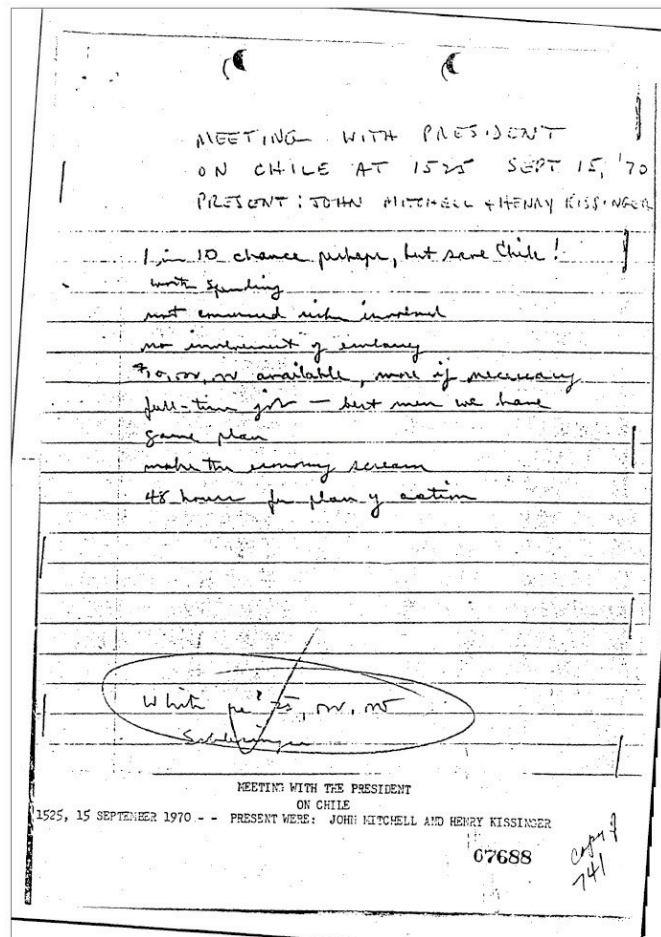 MEETING WITH PRESIDENT
ON CHILE AT 1525 SEPT 15, '70
PRESENT: JOHN MITCHELL + HENRY KISSINGER
1 in 10 chance perhaps, but save Chile!
worth spending
not concerned risks involved
no involvement of embassy
$10,000,000 available, more if necessary
full-time job — best men we have
game plan
make the economy scream
48 hours for plan of action
White
MEETING WITH THE PRESIDENT
ON CHILE
1525, 15 SEPTEMBER 1970 - - PRESENT WERE: JOHN MITCHELL AND HENRY KISSINGER
67688
copy
741